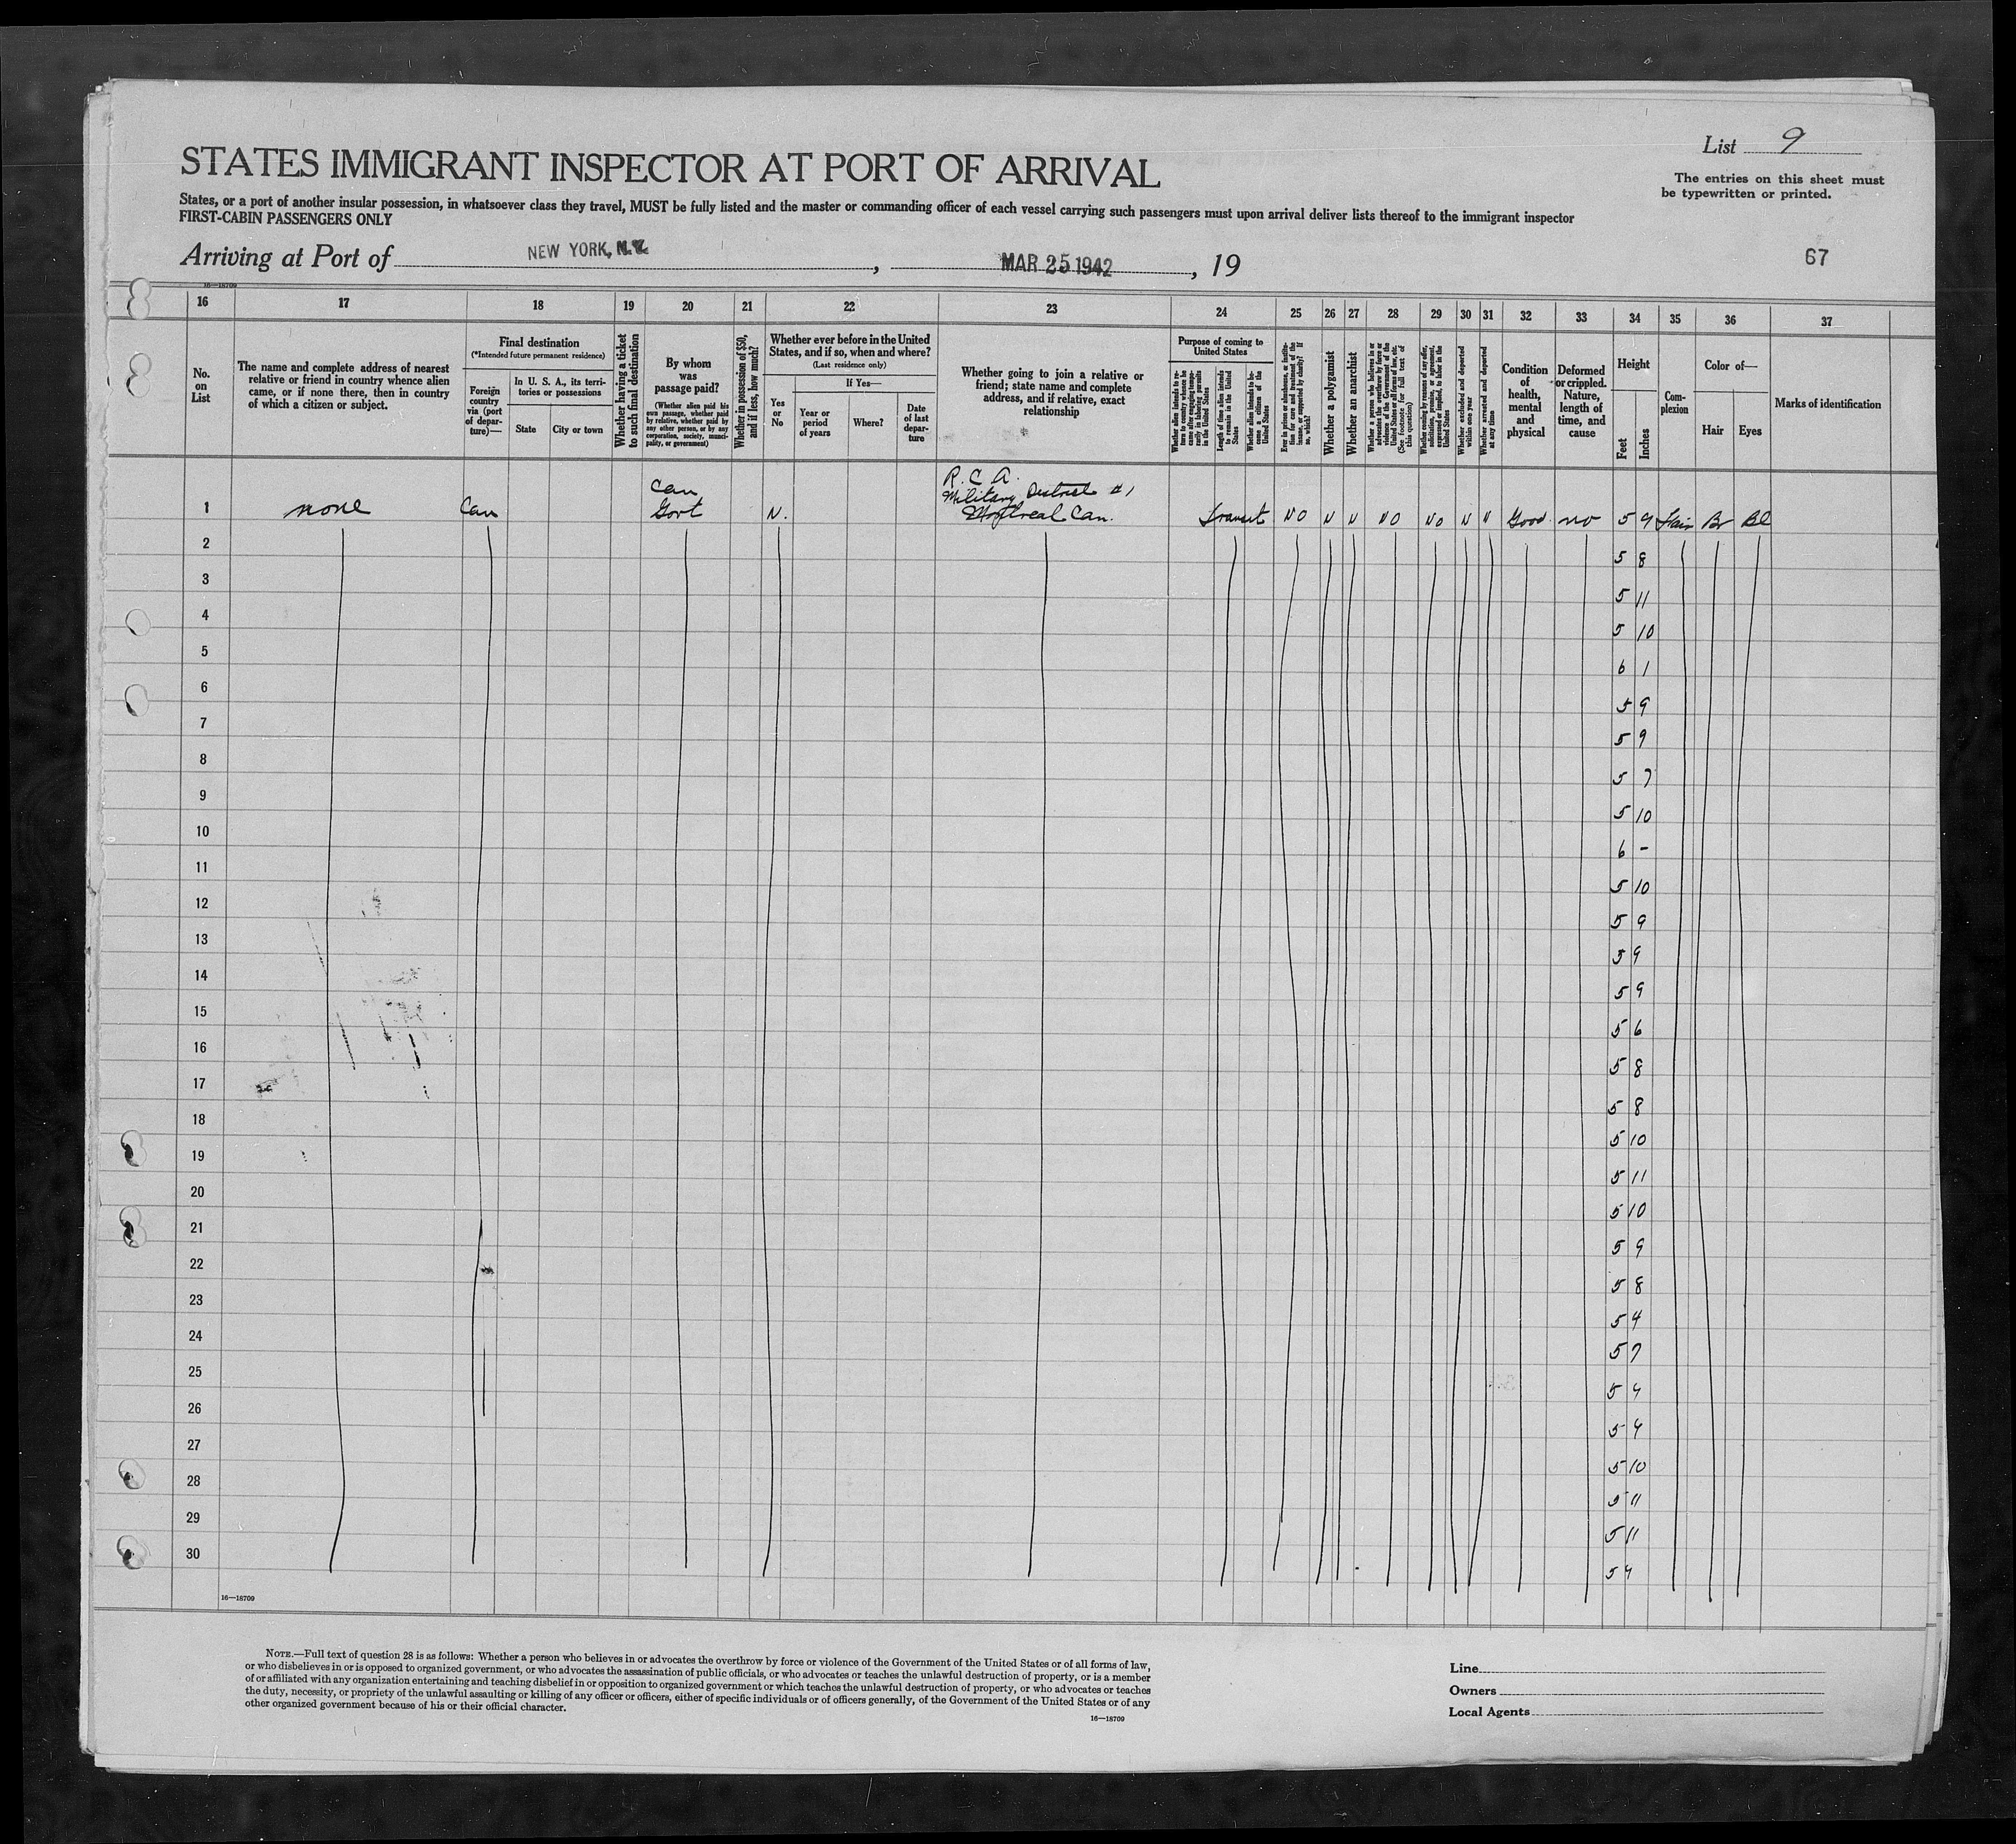 List 9
The entries on this sheet must
be typewritten or printed.
STATES IMMIGRANT INSPECTOR AT PORT OF ARRIVAL
States, or a port of another insular possession, in whatsoever class they travel, MUST be fully listed and the master or commanding officer of each vessel carrying such passengers must upon arrival deliver lists thereof to the immigrant inspector
FIRST-CABIN PASSENGERS ONLY
Arriving at Port of NEW YORK, N.Y. , MAR 25 1942 , 19
67
16—18709
16 17 18 19 20 21 22 23 24 25 26 27 28 29 30 31 32 33 34 35 36 37
No. on List
The name and complete address of nearest
relative or friend in country whence alien
came, or if none there, then in country
of which a citizen or subject.
Final destination
(*Intended future permanent residence)
Foreign country via (port of departure)—
In U. S. A., its territories or possessions
State
City or town
Whether having a ticket to such final destination
By whom was passage paid?
(Whether alien paid his own passage, whether paid by relative, whether paid by any other person, or by any corporation, society, municipality, or government)
Whether in possession of $50, and if less, how much?
Whether ever before in the United States, and if so, when and where?
(Last residence only)
Yes or No
If Yes—
Year or period of years
Where?
Date of last departure
Whether going to join a relative or
friend; state name and complete
address, and if relative, exact
relationship
Purpose of coming to United States
Whether alien intends to return to country whence he came after engaging temporarily in laboring pursuits in the United States
Length of time alien intends to remain in the United States
Whether alien intends to become a citizen of the United States
Ever in prison or almshouse, or institution for care and treatment of the insane, or supported by charity? If so, which?
Whether a polygamist
Whether an anarchist
Whether a person who believes in or advocates the overthrow by force or violence of the Government of the United States or all forms of law, etc. (See footnote for full text of this question)
Whether coming by reason of any offer, solicitation, promise, or agreement, expressed or implied, to labor in the United States
Whether excluded and deported within one year
Whether arrested and deported at any time
Condition of health, mental and physical
Deformed or crippled. Nature, length of time, and cause
Height
Feet
Inches
Complexion
Color of—
Hair
Eyes
Marks of identification
1 none Can Can Govt N. R.C.A. Military District #1 Montreal Can. Transit NO N N NO NO N N Good no 5 9 Fair Br Bl
2 5 8
3 5 11
4 5 10
5 6 1
6 5 9
7 5 9
8 5 7
9 5 10
10 6 -
11 5 10
12 5 9
13 5 9
14 5 9
15 5 6
16 5 8
17 5 8
18 5 10
19 5 11
20 5 10
21 5 9
22 5 8
23 5 4
24 5 7
25 5 9
26 5 9
27 5 10
28 5 11
29 5 11
30 5 9
16—18709
NOTE.—Full text of question 28 is as follows: Whether a person who believes in or advocates the overthrow by force or violence of the Government of the United States or of all forms of law,
or who disbelieves in or is opposed to organized government, or who advocates the assassination of public officials, or who advocates or teaches the unlawful destruction of property, or is a member
of or affiliated with any organization entertaining and teaching disbelief in or opposition to organized government or which teaches the unlawful destruction of property, or who advocates or teaches
the duty, necessity, or propriety of the unlawful assaulting or killing of any officer or officers, either of specific individuals or of officers generally, of the Government of the United States or of any
other organized government because of his or their official character.
16—18709
Line
Owners
Local Agents